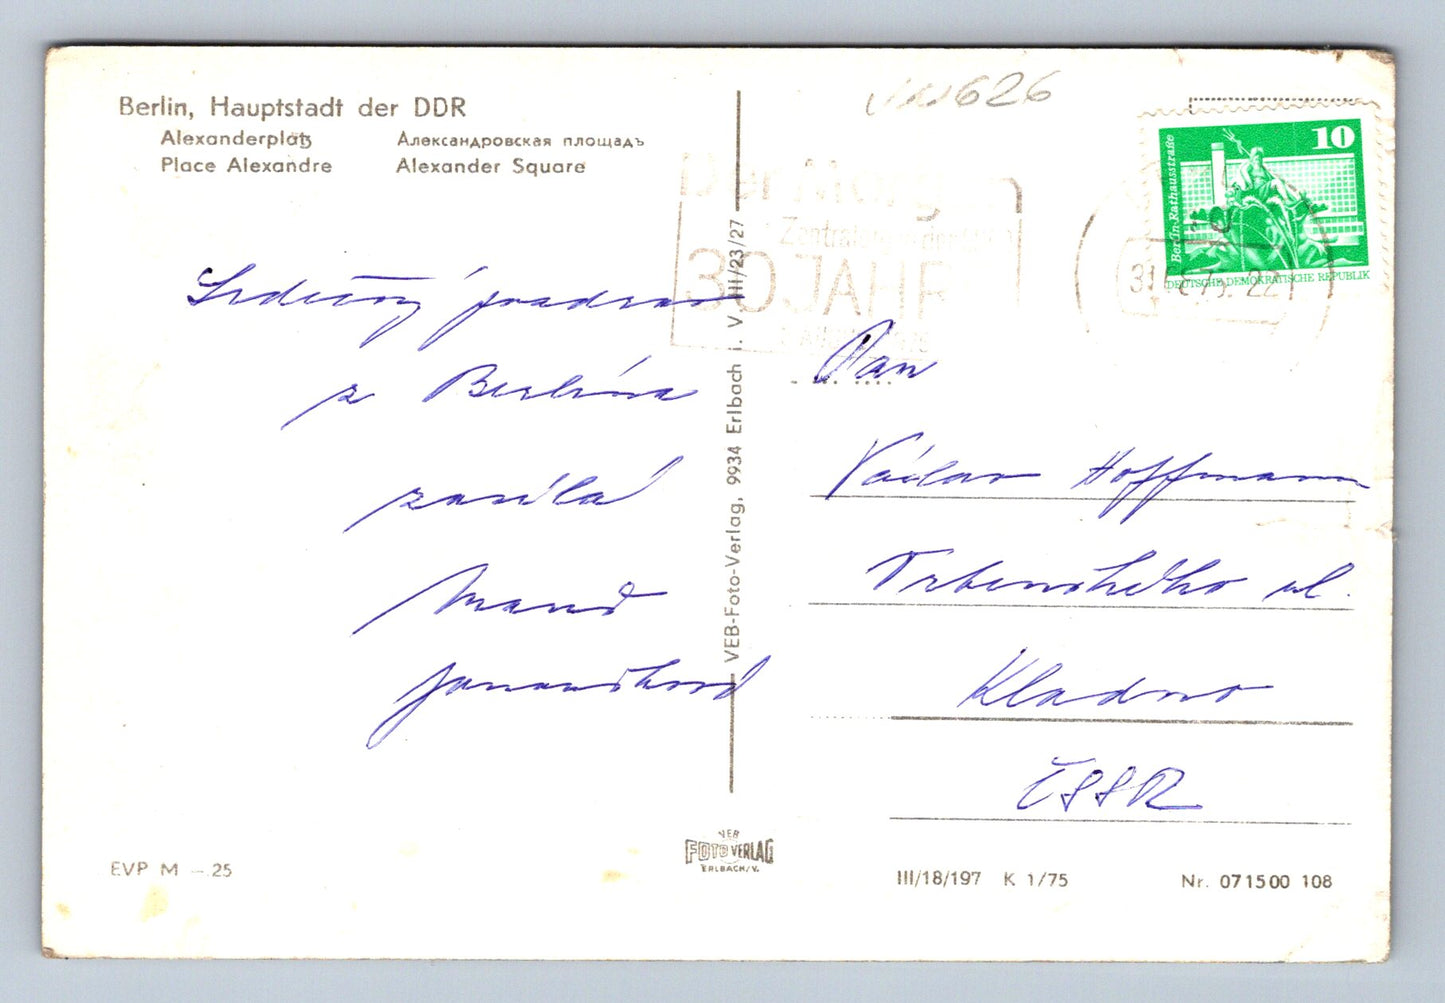 Berlin, Hauptstadt der DDR
Alexanderplatz Александровская площадь
Place Alexandre Alexander Square
626
10
Berlin-Rathausstraße
DEUTSCHE DEMOKRATISCHE REPUBLIK
30 JAHRE
Srdečný pozdrav
z Berlína
zasílá
VEB-Foto-Verlag, 9934 Erlbach i. V. III/23/27
Pan
Václav Hoffmann
ul.
Kladno
ČSSR
EVP M -.25
VEB
FOTO VERLAG
ERLBACH/V.
III/18/197 K 1/75
Nr. 071500 108